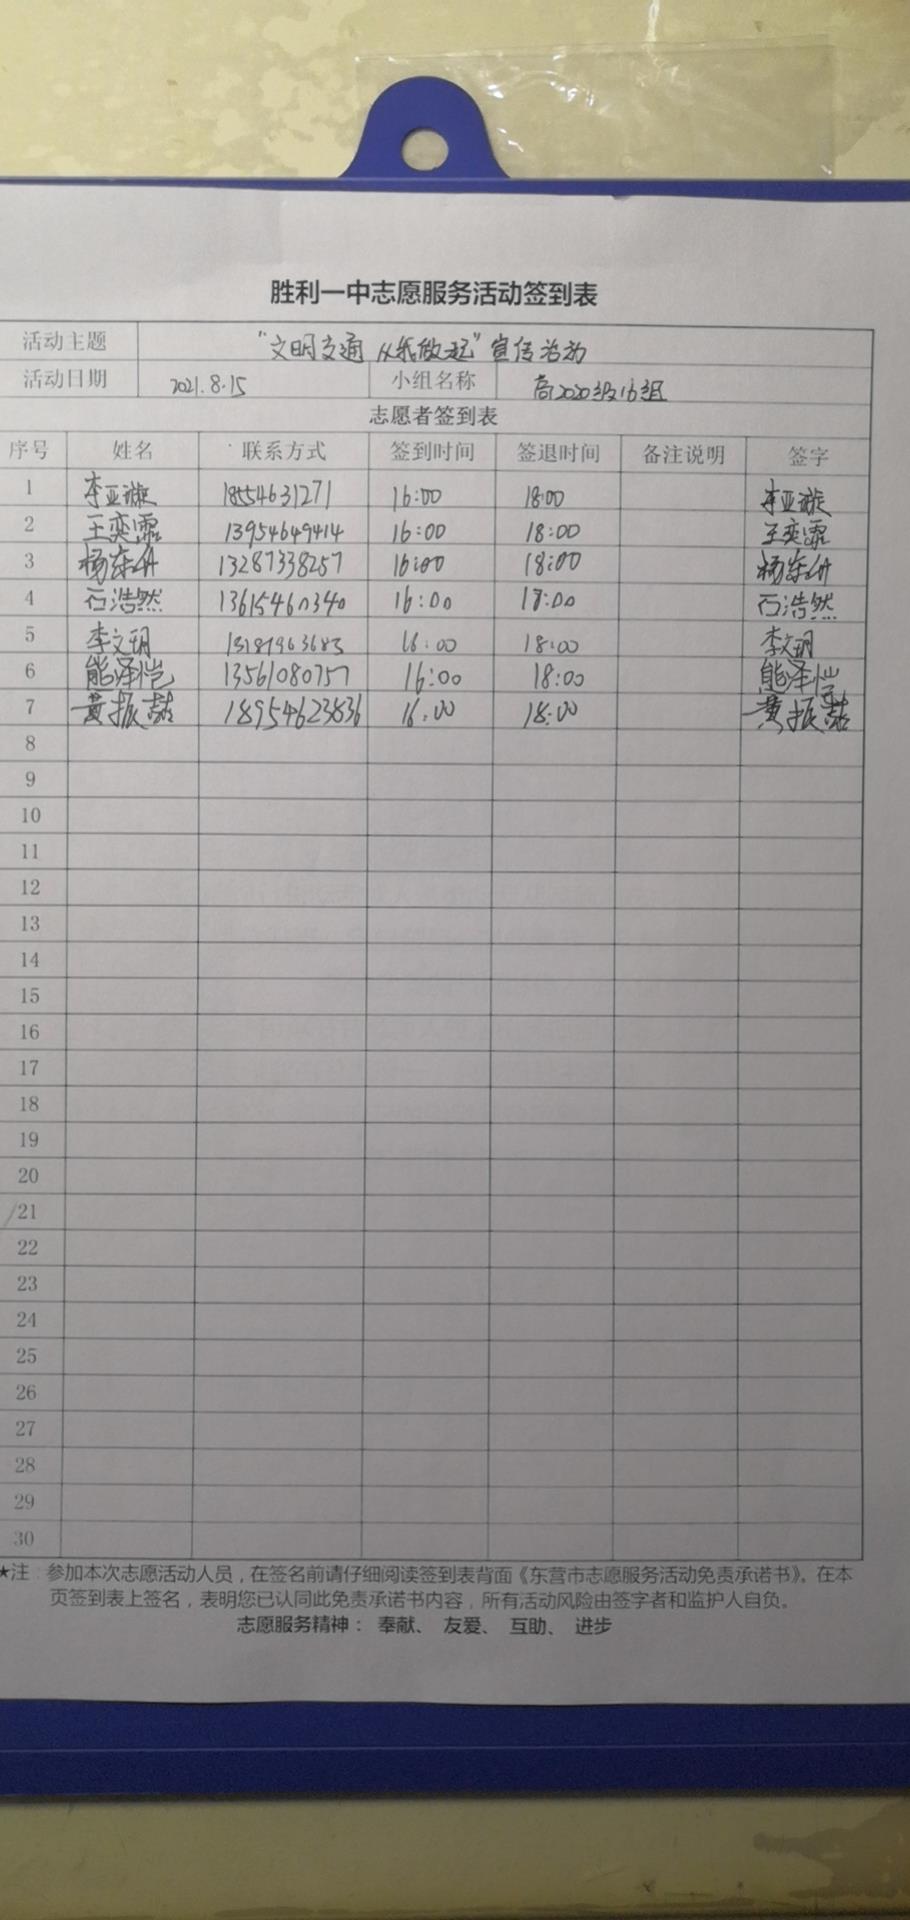 胜利一中志愿服务活动签到表
活动主题 “文明交通 从我做起”宣传活动
活动日期 2021.8.15 小组名称 高2020级16组
志愿者签到表
序号 姓名 联系方式 签到时间 签退时间 备注说明 签字
1 李亚璇 18554631271 16:00 18:00 李亚璇
2 王奕霏 13954649414 16:00 18:00 王奕霏
3 13287338257 16:00 18:00
4 石浩然 13615460340 16:00 18:00 石浩然
5 李文玥 16:00 18:00 李文玥
6 熊泽恺 13561080757 16:00 18:00 熊泽恺
7 黄振喆 18954623836 16:00 18:00 黄振喆
8
9
10
11
12
13
14
15
16
17
18
19
20
21
22
23
24
25
26
27
28
29
30
★注：参加本次志愿活动人员，在签名前请仔细阅读签到表背面《东营市志愿服务活动免责承诺书》。在本
页签到表上签名，表明您已认同此免责承诺书内容，所有活动风险由签字者和监护人自负。
志愿服务精神： 奉献、 友爱、 互助、 进步